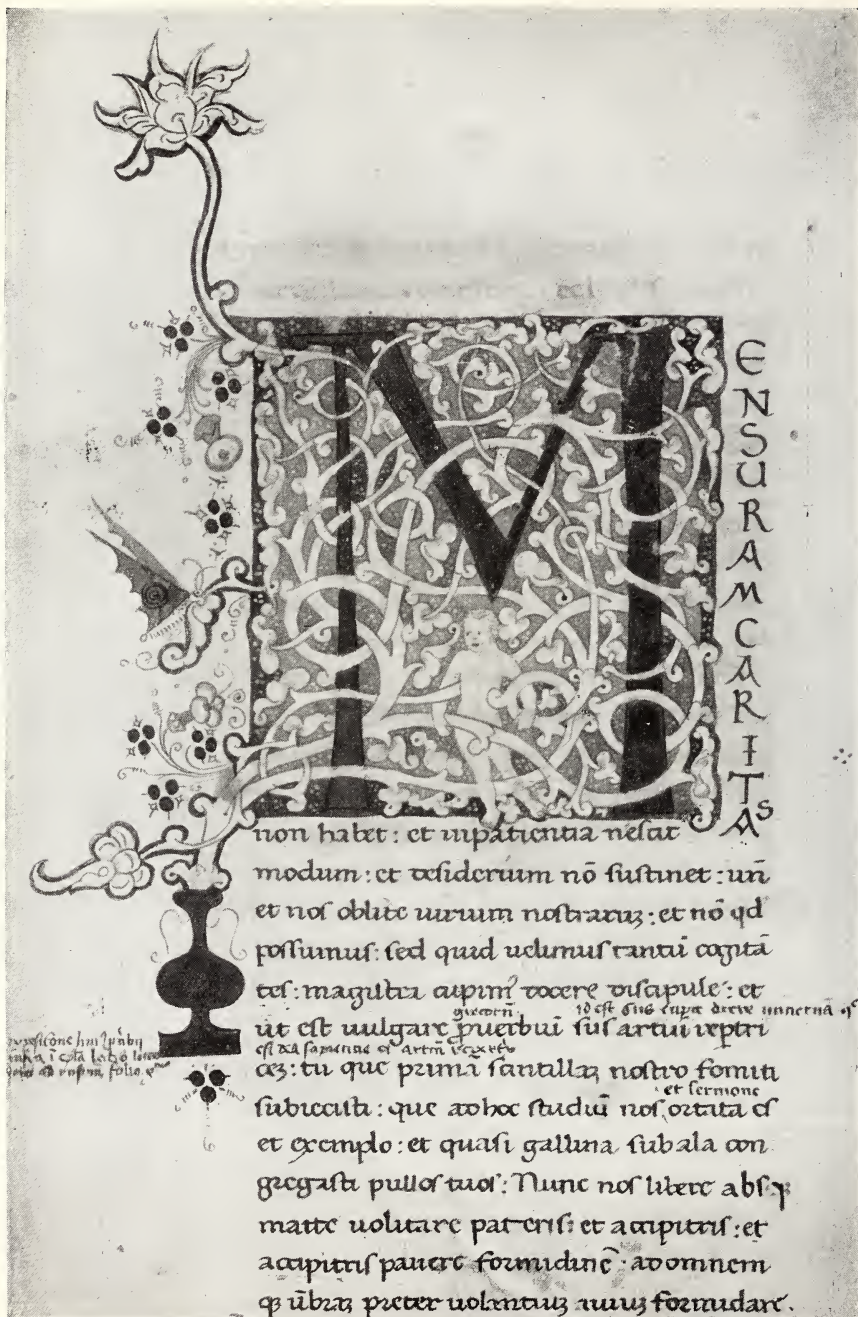 M
ENSURAMCARITAS
non habet: et inpatientia nescit
modum: et desiderium nō sustinet: un̄
et nos oblite uirium nostraruʒ: et nō qd
possumus: sed quid uelimus tantū cogitā
tes: magistrā cupimꝰ docere discipule: et
id est sus cupit docere mineruā
ut est uulgare ꝓuerbiū sus artiū reptri
ceʒ: tu que primā scintillaʒ nostro fomiti
et sermone
subiecisti: que ad hoc studiū nos ortata es
et exemplo: et quasi gallina sub ala con
gregasti pullos tuos: Nunc nos libere absqʒ
matre uolitare pateris: et accipitris: et
accipitris pauere formidinē · ad omnem
qʒ ūbraʒ preter uolantiuʒ auiuʒ formidare.